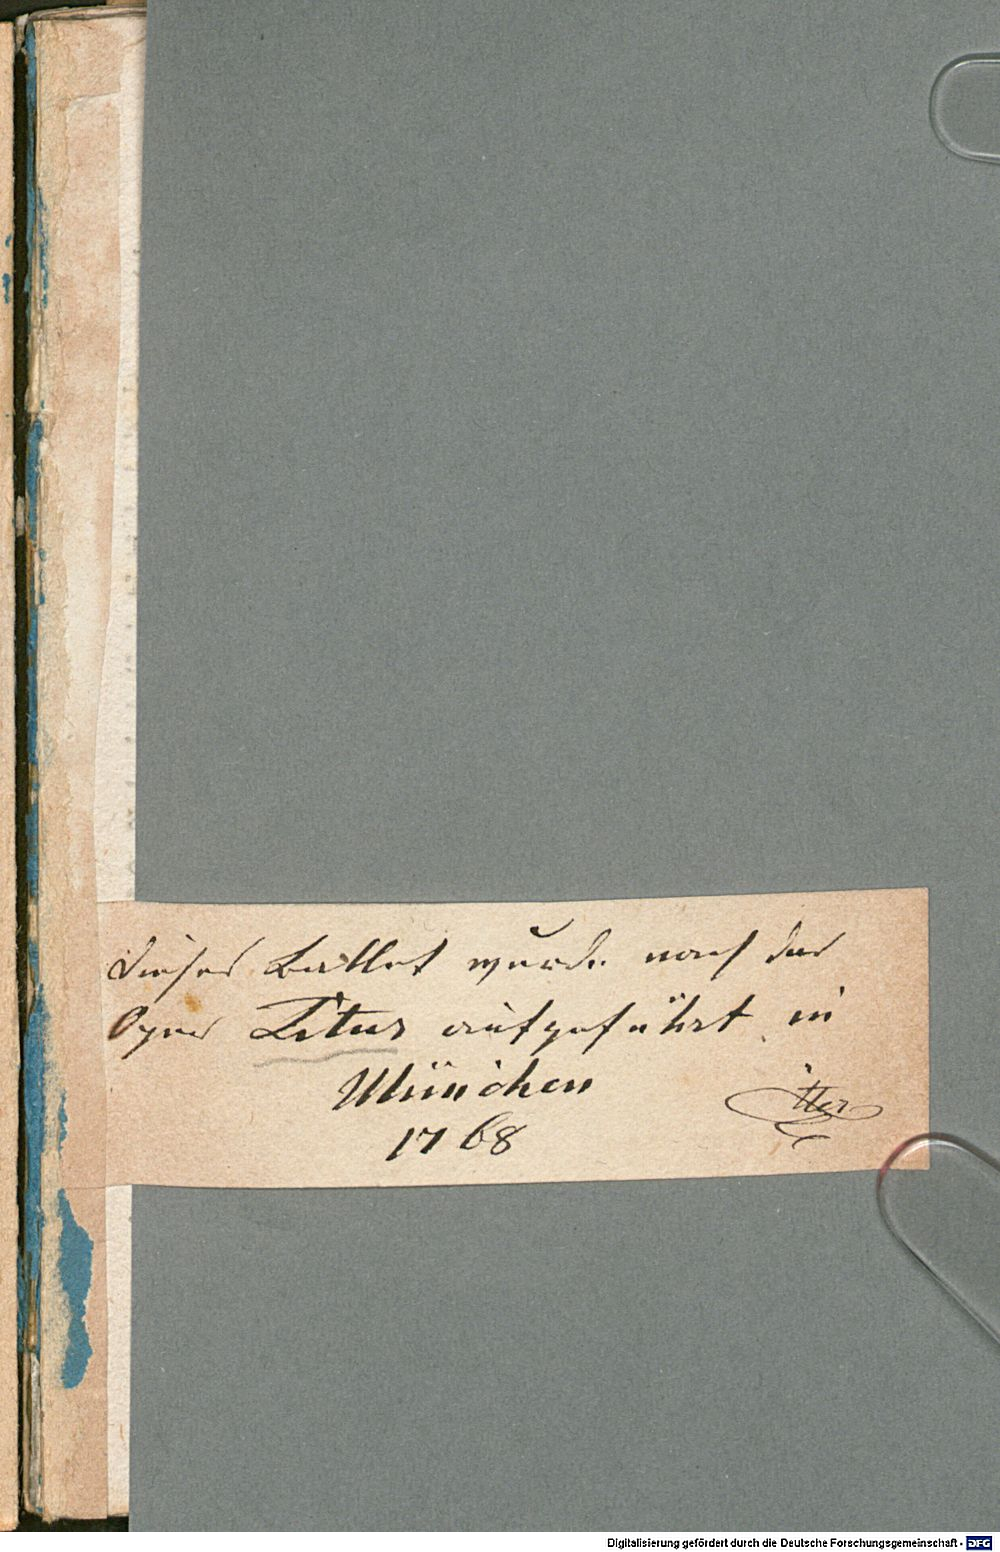 Dieses Ballet wurde nach der
Oper Titus aufgeführt in
München
1768
Digitalisierung gefördert durch die Deutsche Forschungsgemeinschaft - DFG